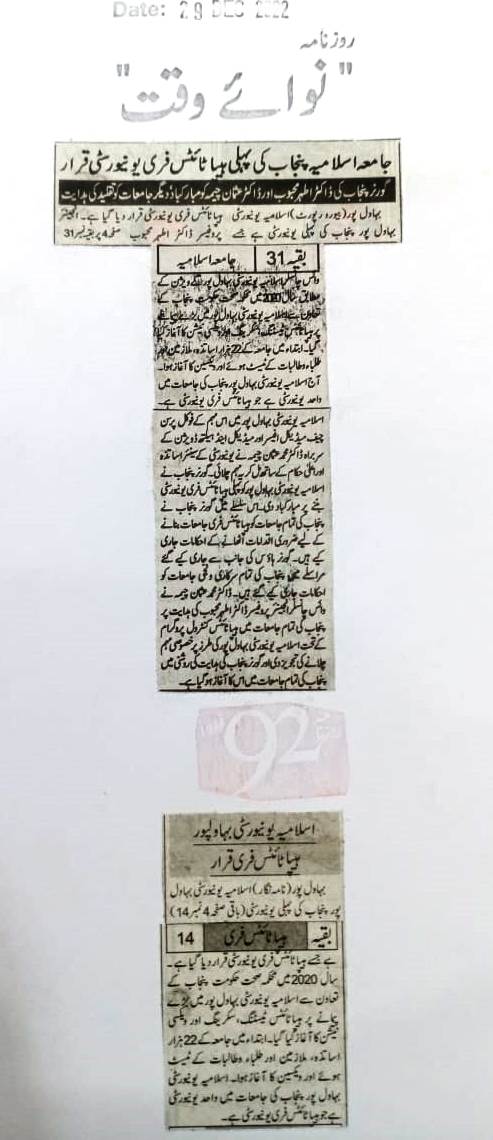 Date: 29 DEC 2022
روزنامہ
"نوائے وقت"
جامعہ اسلامیہ پنجاب کی پہلی ہیپاٹائٹس فری یونیورسٹی قرار
گورنر پنجاب کی ڈاکٹر اطہر محبوب اور ڈاکٹر عثمان چیمہ کو مبارکباد دیگر جامعات کو تقلید کی ہدایت
بہاول پور (بیورو رپورٹ) اسلامیہ یونیورسٹی ہیپاٹائٹس فری یونیورسٹی قرار دیا گیا ہے۔ انجینئر
بہاول پور پنجاب کی پہلی یونیورسٹی ہے جسے پروفیسر ڈاکٹر اطہر محبوب صفحہ 4 پر بقیہ نمبر 31
بقیہ 31 جامعہ اسلامیہ
وائس چانسلر اسلامیہ یونیورسٹی بہاول پور کے ویژن کے
مطابق سال 2020 میں محکمہ صحت حکومت پنجاب کے
تعاون سے اسلامیہ یونیورسٹی بہاول پور میں بڑے پیمانے
پر ہیپاٹائٹس ٹیسٹنگ، سکریننگ اور ویکسی نیشن کا آغاز کیا
گیا۔ ابتداء میں جامعہ کے 22 ہزار اساتذہ، ملازمین اور
طلباء و طالبات کے ٹیسٹ ہوئے اور ویکسین کا آغاز ہوا۔
آج اسلامیہ یونیورسٹی بہاول پور پنجاب کی جامعات میں
واحد یونیورسٹی ہے جو ہیپاٹائٹس فری یونیورسٹی ہے۔
اسلامیہ یونیورسٹی بہاول پور میں اس مہم کے فوکل پرسن
چیف میڈیکل آفیسر اور میڈیکل اینڈ ہیلتھ ڈویژن کے
سربراہ ڈاکٹر محمد عثمان چیمہ نے یونیورسٹی کے سینئر اساتذہ
اور اعلیٰ حکام کے ساتھ مل کر یہ مہم چلائی۔ گورنر پنجاب نے
اسلامیہ یونیورسٹی بہاول پور کو پہلی ہیپاٹائٹس فری یونیورسٹی
بننے پر مبارکباد دی۔ اس سلسلے میں گورنر پنجاب نے
پنجاب کی تمام جامعات کو ہیپاٹائٹس فری جامعات بنانے
کے لیے ضروری اقدامات اٹھانے کے احکامات جاری
کیے ہیں۔ گورنر ہاؤس کی جانب سے جاری کیے گئے
مراسلے میں پنجاب کی تمام سرکاری و نجی جامعات کو
احکامات جاری کیے گئے ہیں۔ ڈاکٹر محمد عثمان چیمہ نے
وائس چانسلر انجینئر پروفیسر ڈاکٹر اطہر محبوب کی ہدایت پر
پنجاب کی تمام جامعات میں ہیپاٹائٹس کنٹرول پروگرام
کے تحت اسلامیہ یونیورسٹی بہاول پور کی طرز پر خصوصی مہم
چلانے کی تجویز دی اور گورنر پنجاب کی ہدایت کی روشنی میں
پنجاب کی تمام جامعات میں اس کا آغاز ہو گیا ہے۔
92
اسلامیہ یونیورسٹی بہاولپور
ہیپاٹائٹس فری قرار
بہاول پور (نامہ نگار) اسلامیہ یونیورسٹی بہاول
پور پنجاب کی پہلی یونیورسٹی (باقی صفحہ 4 نمبر 14)
بقیہ ہیپاٹائٹس فری 14
ہے جسے ہیپاٹائٹس فری یونیورسٹی قرار دیا گیا ہے۔
سال 2020 میں محکمہ صحت حکومت پنجاب کے
تعاون سے اسلامیہ یونیورسٹی بہاول پور میں بڑے
پیمانے پر ہیپاٹائٹس ٹیسٹنگ، سکریننگ اور ویکسی
نیشن کا آغاز کیا گیا۔ ابتداء میں جامعہ کے 22 ہزار
اساتذہ، ملازمین اور طلباء و طالبات کے ٹیسٹ
ہوئے اور ویکسین کا آغاز ہوا۔ اسلامیہ یونیورسٹی
بہاول پور پنجاب کی جامعات میں واحد یونیورسٹی
ہے جو ہیپاٹائٹس فری یونیورسٹی ہے۔